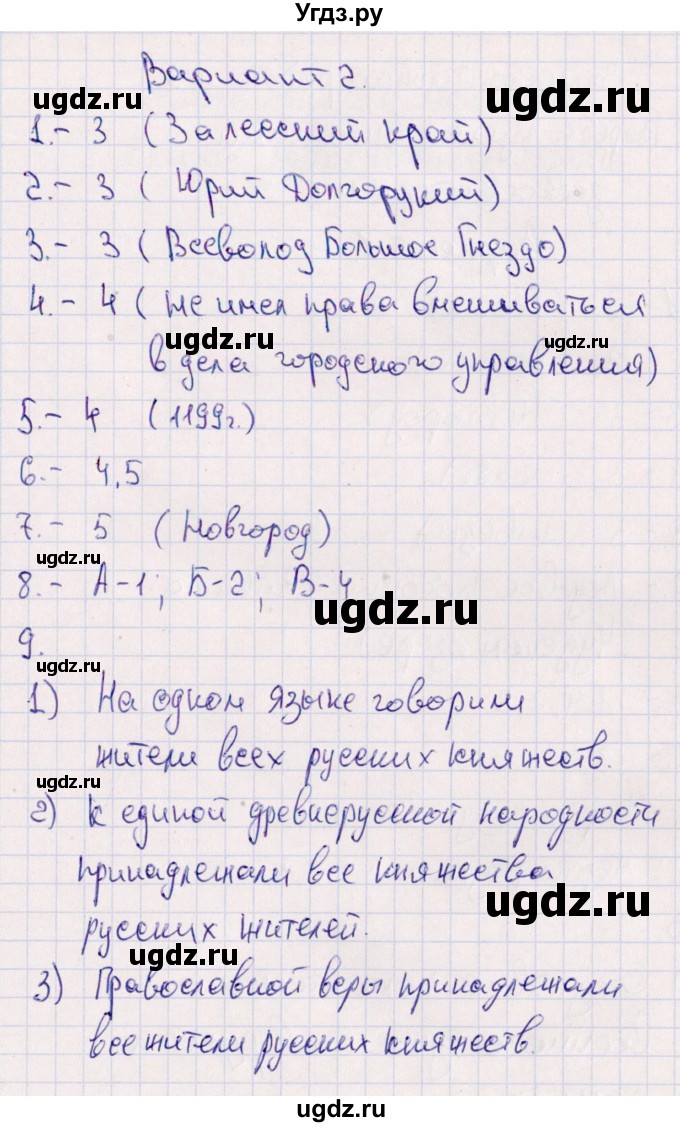 Угдз.ру
Вариант 2.
ugdz.ru
ugdz.ru
1.- 3 (Залесский край)
2.- 3 ( Юрий Долгорукий)
ugdz.ru
3.- 3 ( Всеволод Большое Гнездо)
4.- 4 ( Не имел права вмешиваться
ugdz.ru
ugdz.ru
в дела городского управления)
5.- 4 (1199г.)
6.- 4,5
7.- 5 ( Новгород)
ugdz.ru
8.- А-1; Б-2; В-4
ugdz.ru
9.
ugdz.ru
1) На одном языке говорили
жители всех русских княжеств.
ugdz.ru
2) К единой древнерусской народности
принадлежали все княжества
ugdz.ru
русских жителей.
ugdz.ru
3) Православной веры принадлежали
все жители русских княжеств.
ugdz.ru
ugdz.ru